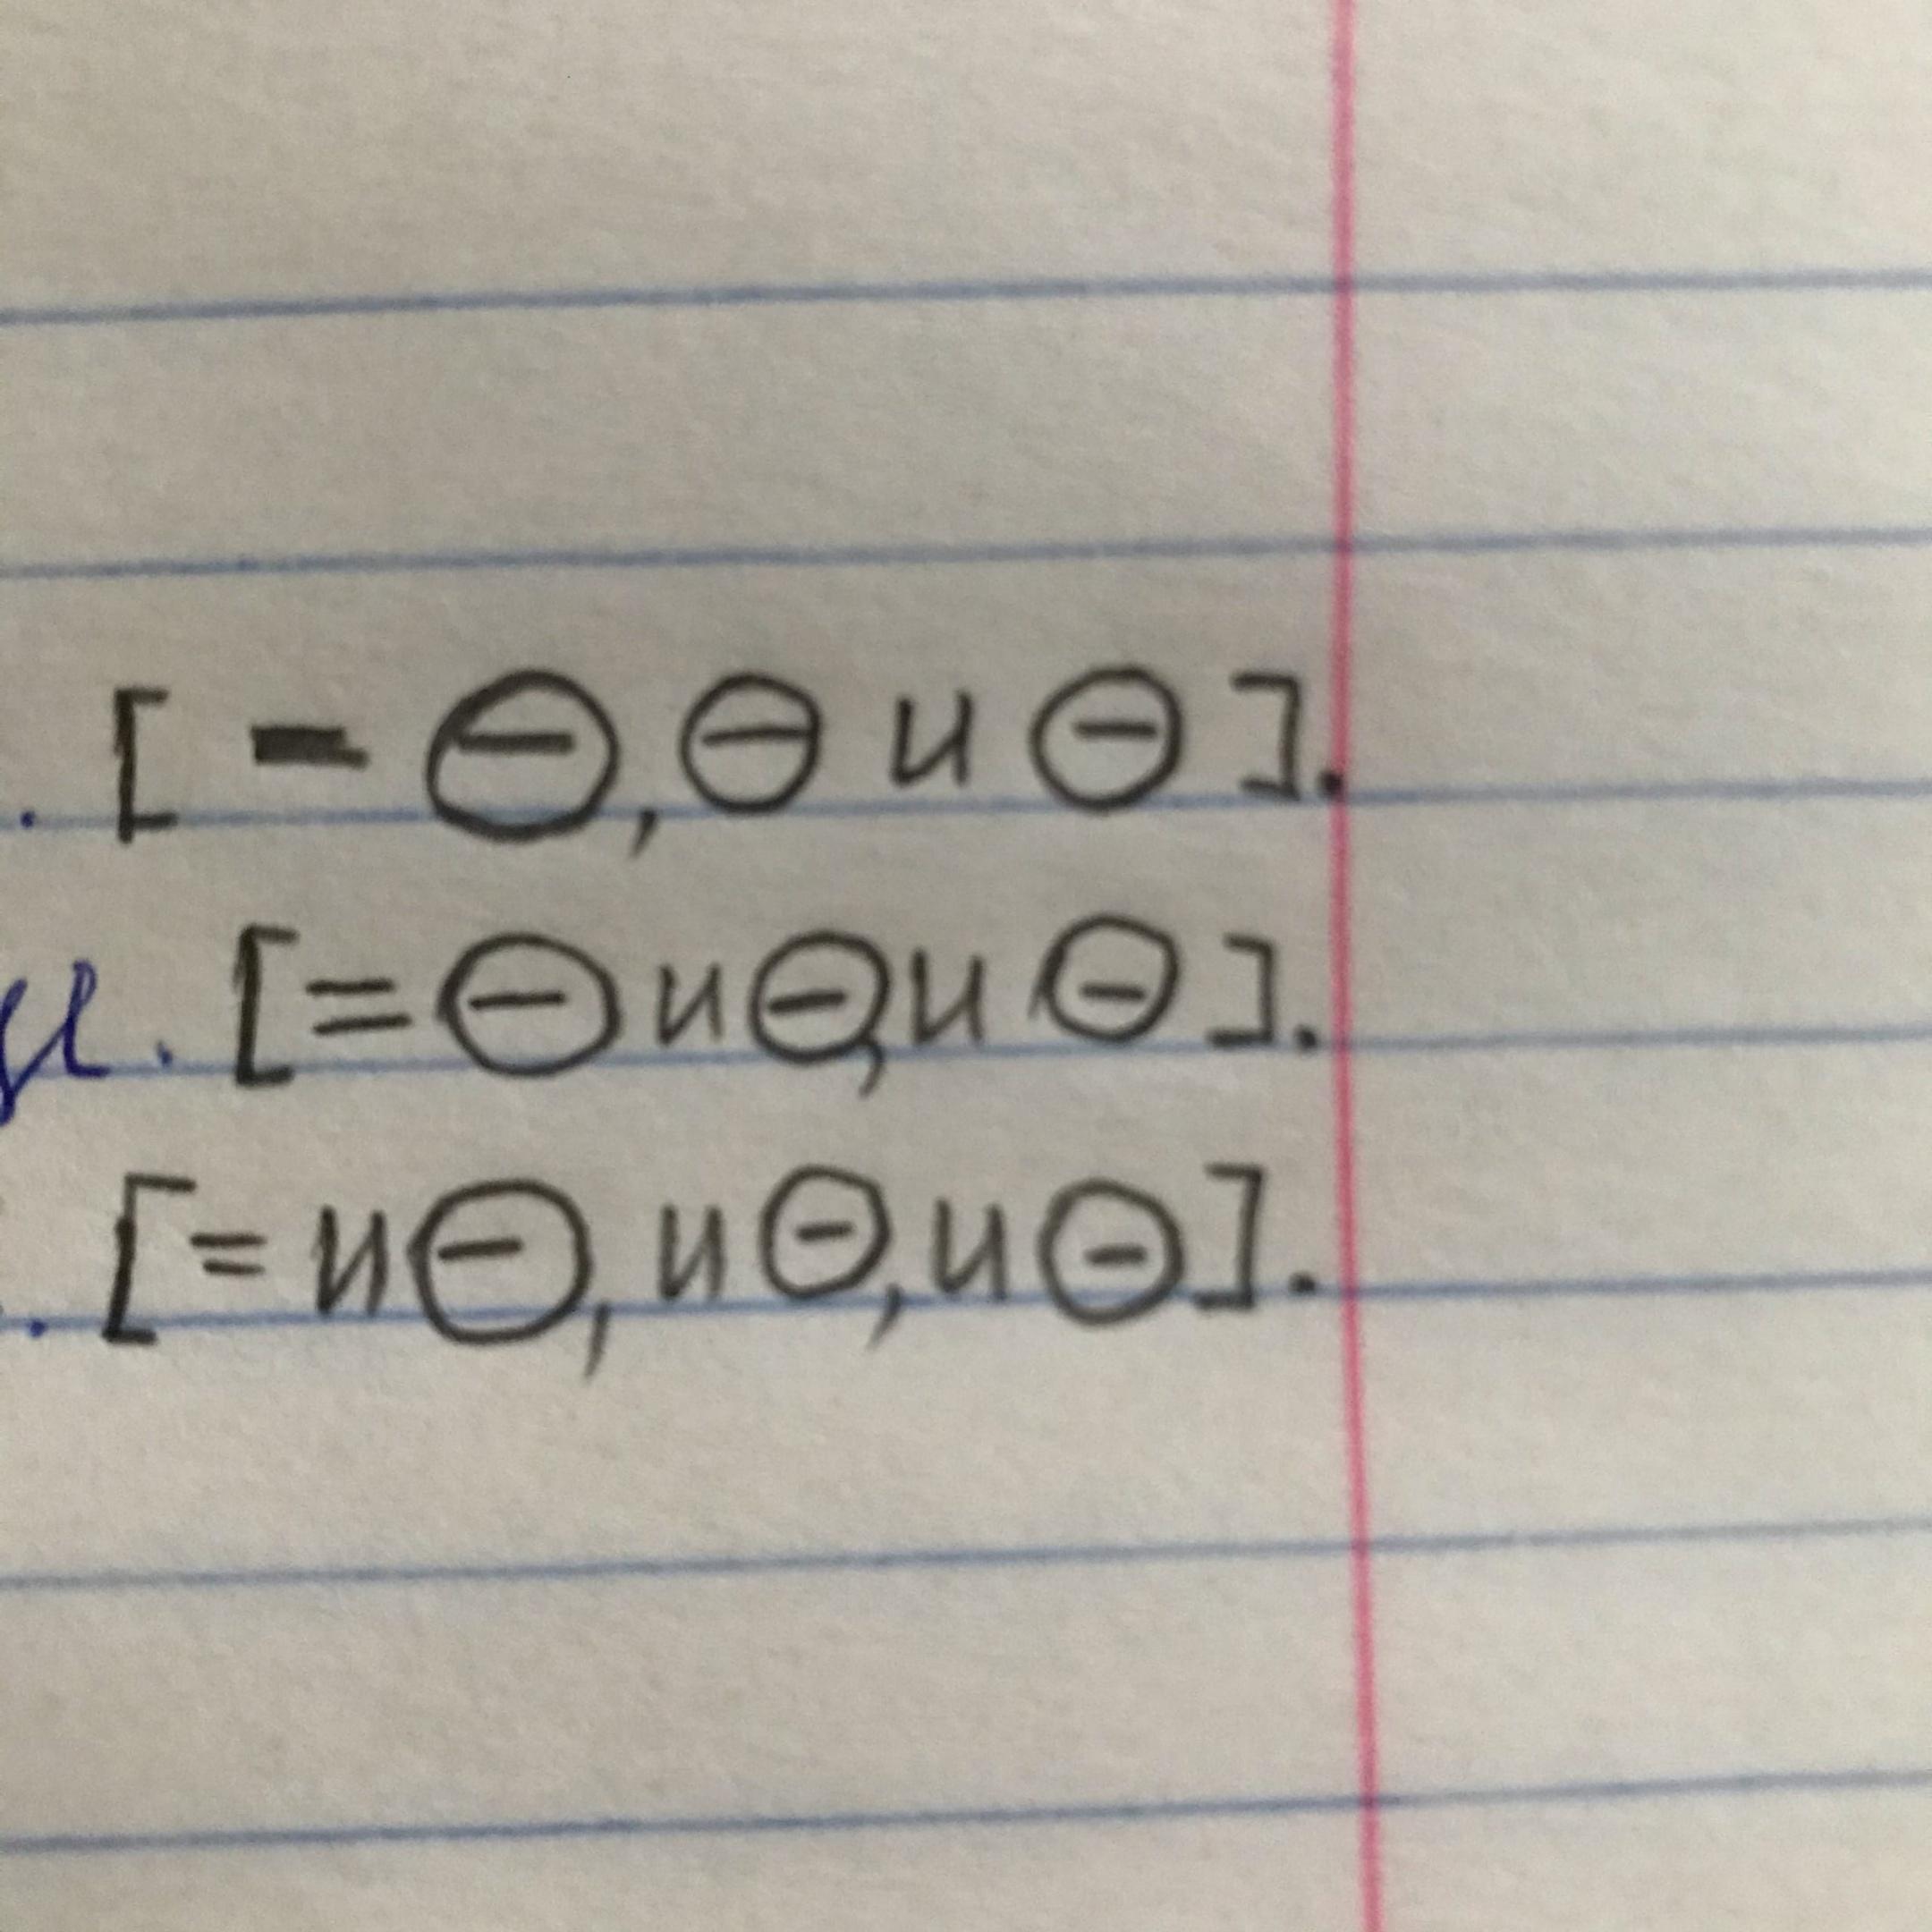 . [ - ⊖, ⊖ и ⊖ ].
я. [= ⊖ и ⊖, и ⊖ ].
. [= и ⊖, и ⊖, и ⊖].